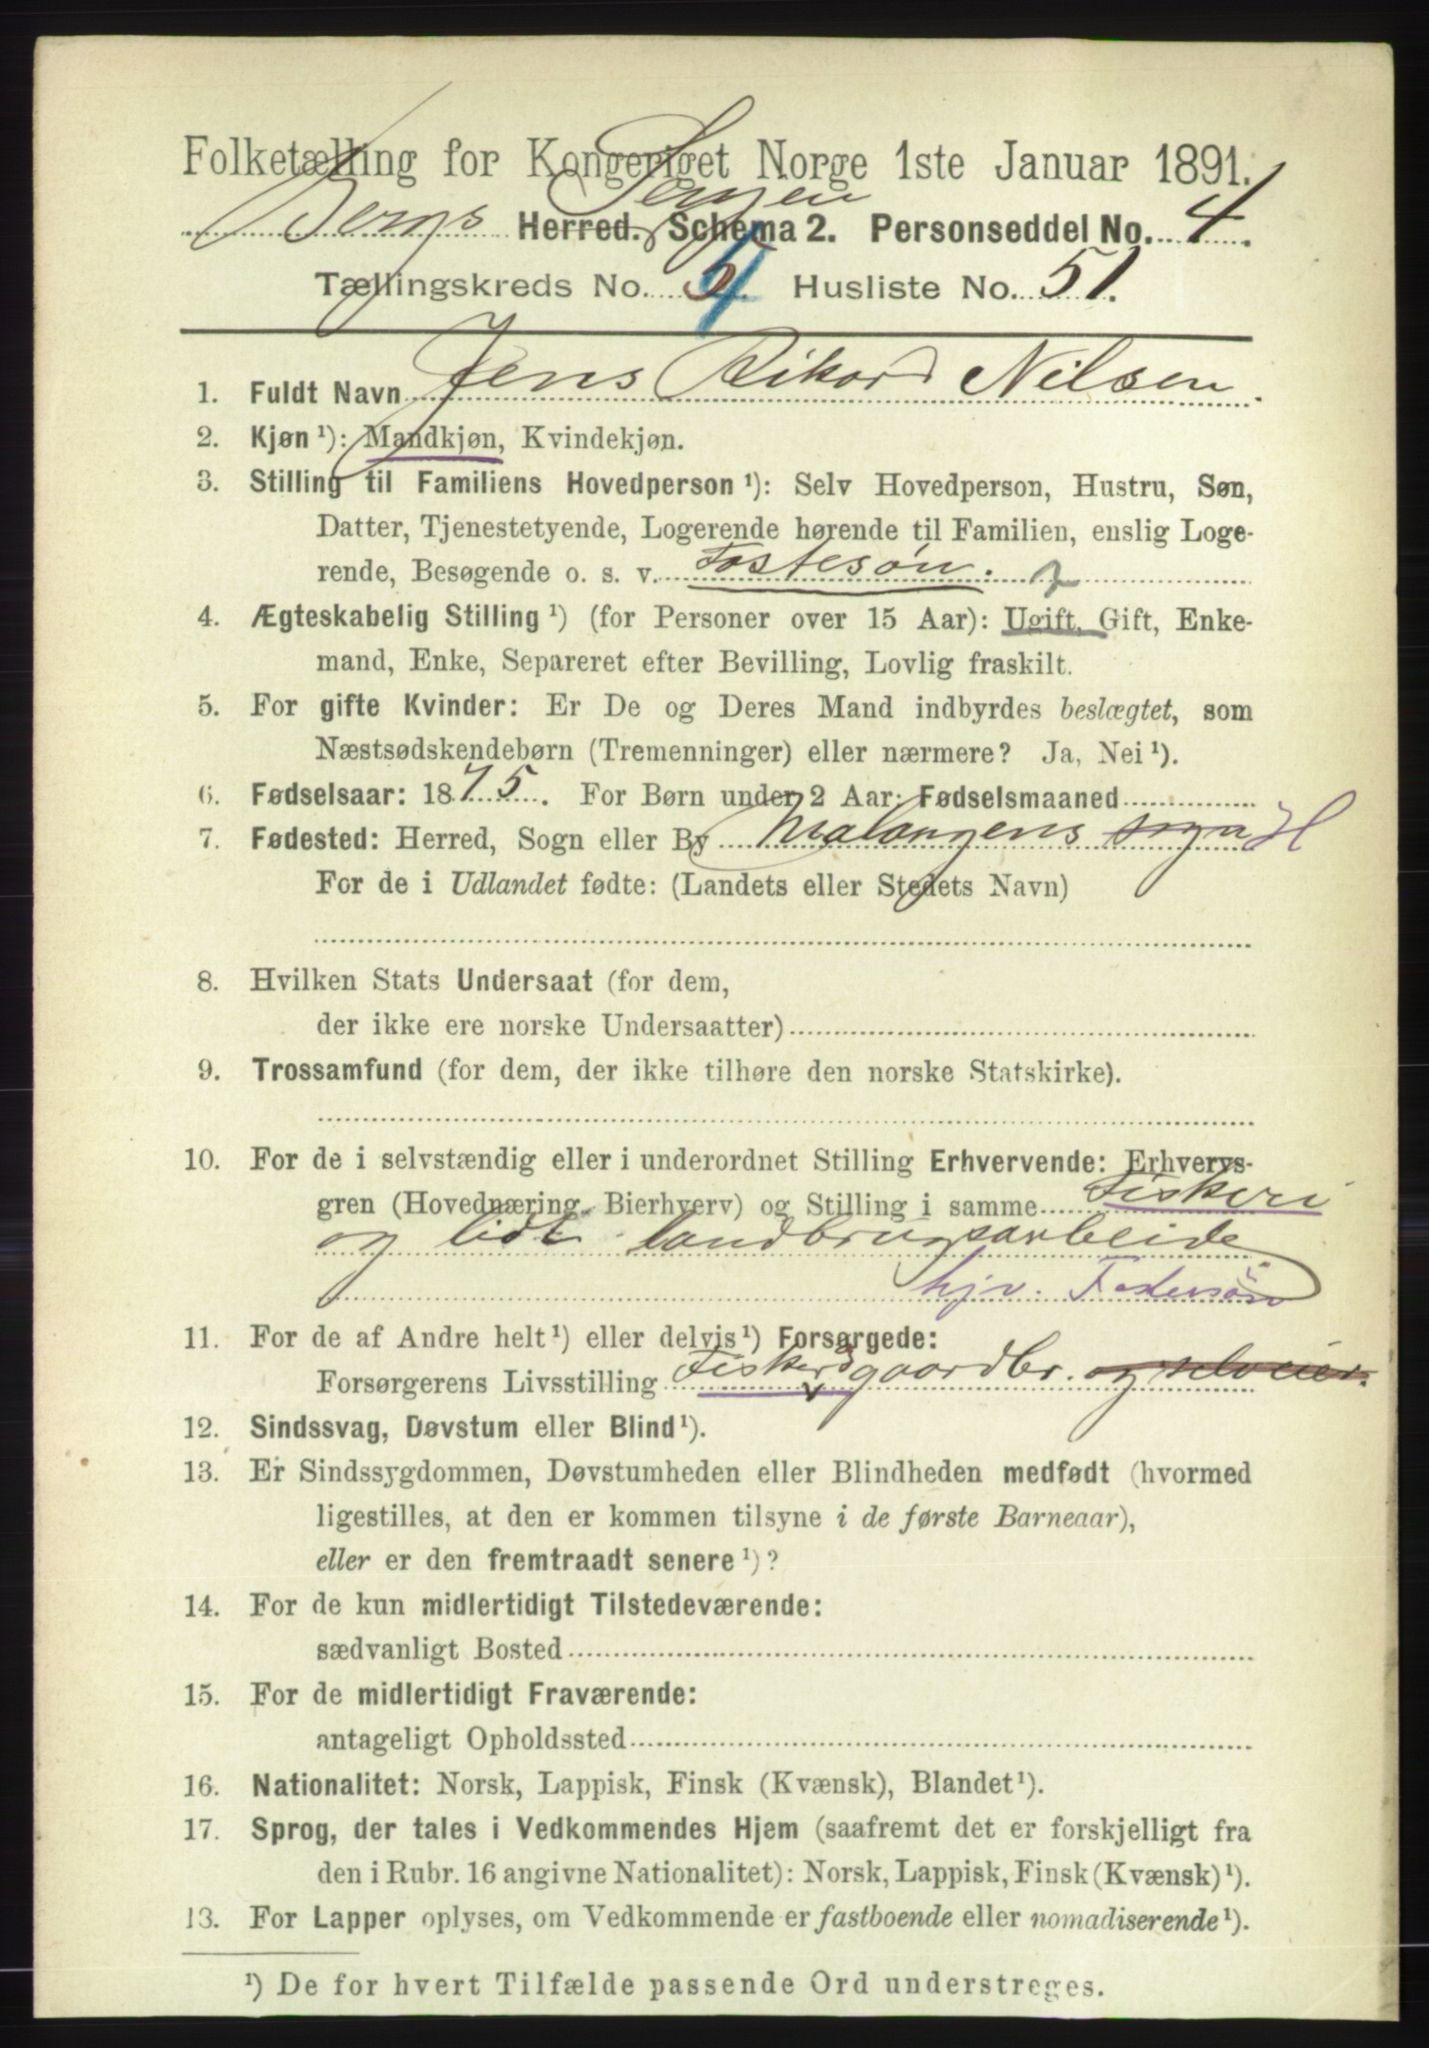 Folketælling for Kongeriget Norge 1ste Januar 1891.
Bergs Herred. Schema 2. Personseddel No. 4.
Tællingskreds No. 5 4 Husliste No. 51.
1. Fuldt Navn Jens Rikard Nilsen.
2. Kjøn ¹): Mandkjøn, Kvindekjøn.
3. Stilling til Familiens Hovedperson ¹): Selv Hovedperson, Hustru, Søn,
Datter, Tjenestetyende, Logerende hørende til Familien, enslig Loge-
rende, Besøgende o. s. v. Fostesøn.
4. Ægteskabelig Stilling ¹) (for Personer over 15 Aar): Ugift, Gift, Enke-
mand, Enke, Separeret efter Bevilling, Lovlig fraskilt.
5. For gifte Kvinder: Er De og Deres Mand indbyrdes beslægtet, som
Næstsødskendebørn (Tremenninger) eller nærmere? Ja, Nei ¹).
6. Fødselsaar: 1875. For Børn under 2 Aar: Fødselsmaaned
7. Fødested: Herred, Sogn eller By Malangens sogn H
For de i Udlandet fødte: (Landets eller Stedets Navn)
8. Hvilken Stats Undersaat (for dem,
der ikke ere norske Undersaatter)
9. Trossamfund (for dem, der ikke tilhøre den norske Statskirke).
10. For de i selvstændig eller i underordnet Stilling Erhvervende: Erhvervs-
gren (Hovednæring, Bierhverv) og Stilling i samme Fiskeri
og lidt landbrugsarbeide
hjv. Fostersøn
11. For de af Andre helt ¹) eller delvis ¹) Forsørgede:
Forsørgerens Livsstilling Fisker gaardbr. og selveier.
12. Sindssvag, Døvstum eller Blind ¹).
13. Er Sindssygdommen, Døvstumheden eller Blindheden medfødt (hvormed
ligestilles, at den er kommen tilsyne i de første Barneaar),
eller er den fremtraadt senere ¹)?
14. For de kun midlertidigt Tilstedeværende:
sædvanligt Bosted
15. For de midlertidigt Fraværende:
antageligt Opholdssted
16. Nationalitet: Norsk, Lappisk, Finsk (Kvænsk), Blandet ¹).
17. Sprog, der tales i Vedkommendes Hjem (saafremt det er forskjelligt fra
den i Rubr. 16 angivne Nationalitet): Norsk, Lappisk, Finsk (Kvænsk) ¹).
13. For Lapper oplyses, om Vedkommende er fastboende eller nomadiserende ¹).
¹) De for hvert Tilfælde passende Ord understreges.